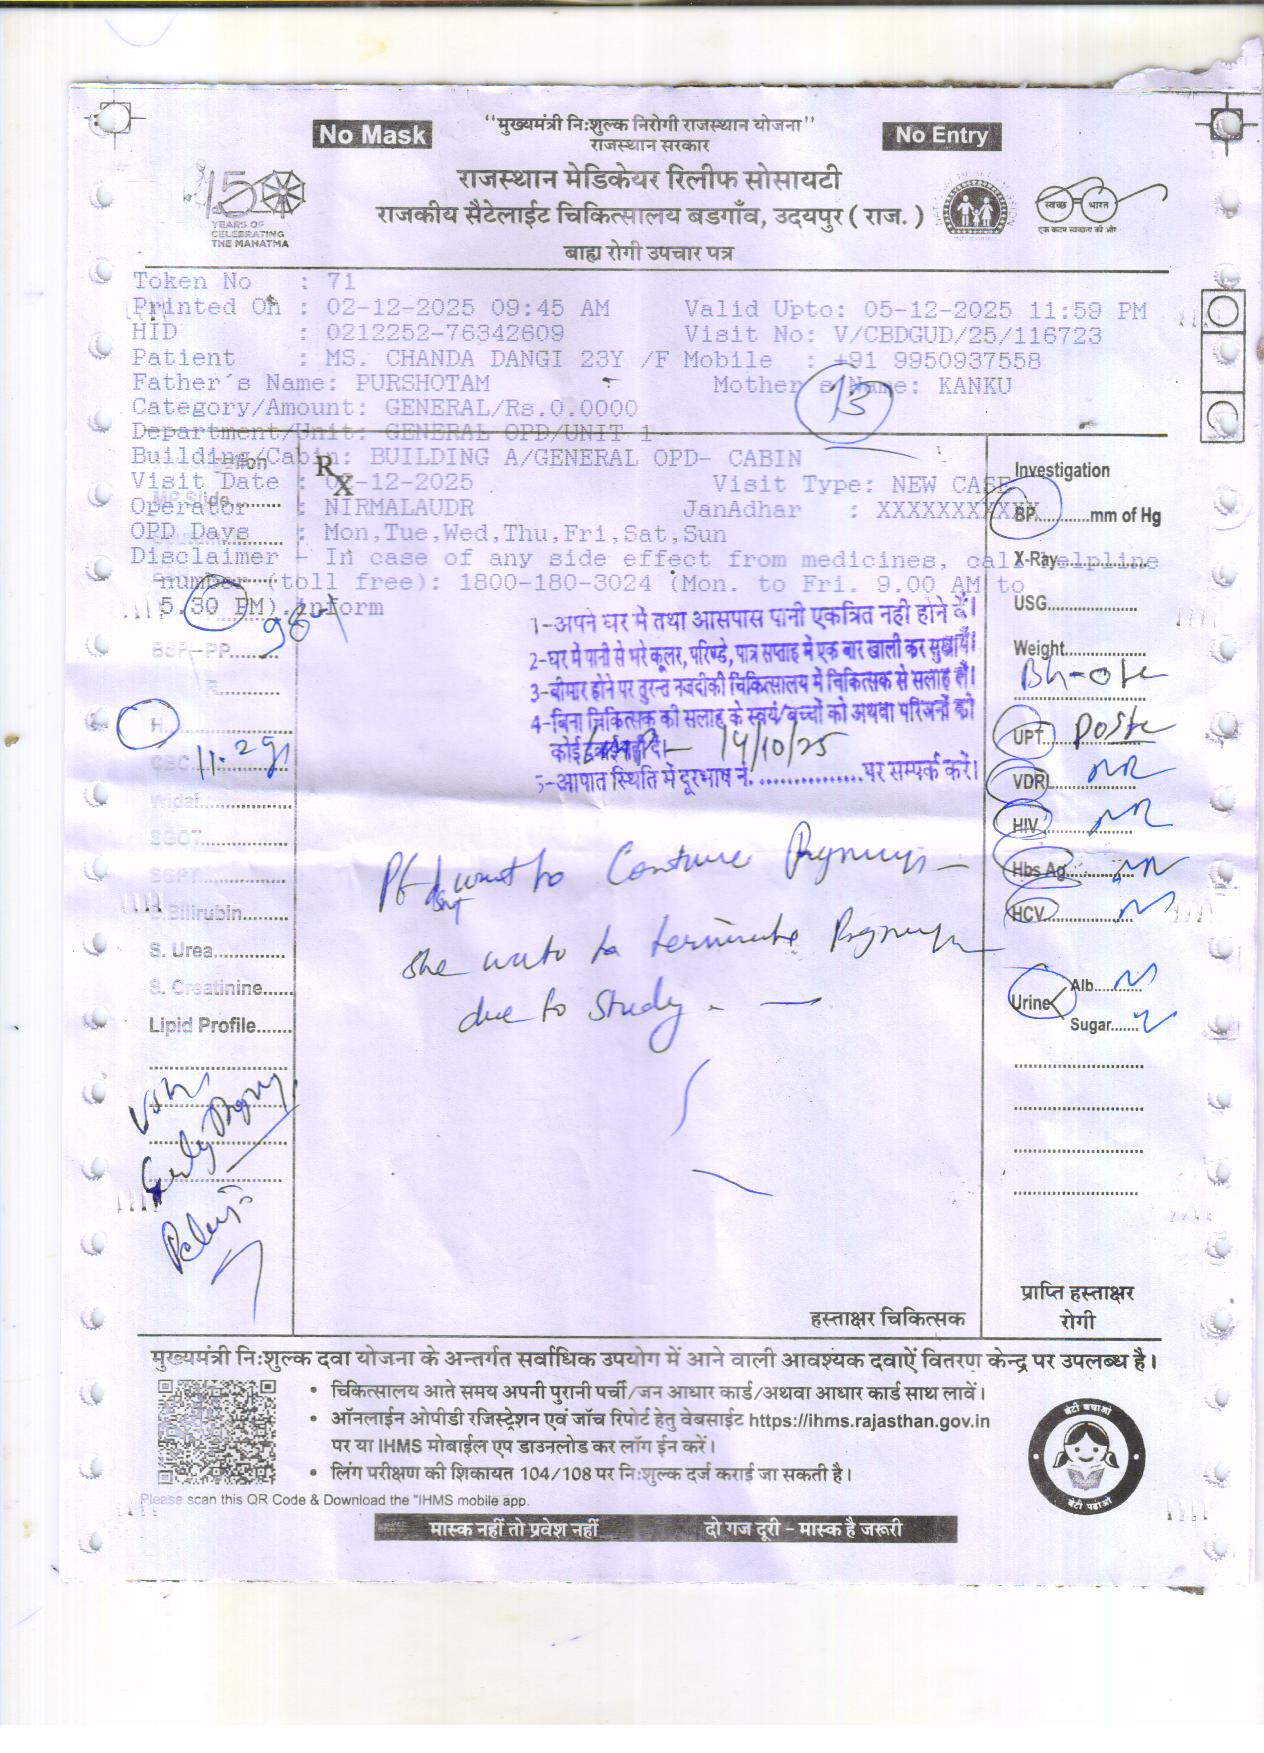 No Mask
"मुख्यमंत्री निःशुल्क निरोगी राजस्थान योजना"
राजस्थान सरकार
No Entry
राजस्थान मेडिकेयर रिलीफ सोसायटी
राजकीय सैटेलाईट चिकित्सालय बडगाँव, उदयपुर ( राज. )
बाह्य रोगी उपचार पत्र
150
YEARS OF
CELEBRATING
THE MAHATMA
स्वच्छ भारत
एक कदम स्वच्छता की ओर
Token No : 71
Printed On : 02-12-2025 09:45 AM Valid Upto: 05-12-2025 11:59 PM
HID : 0212252-76342609 Visit No: V/CBDGUD/25/116723
Patient : MS. CHANDA DANGI 23Y /F Mobile : +91 9950937558
Father's Name: PURSHOTAM Mother's Name: KANKU
13
Category/Amount: GENERAL/Rs.0.0000
Department/Unit: GENERAL OPD/UNIT 1
Building/Cabin: BUILDING A/GENERAL OPD- CABIN
Visit Date : 02-12-2025 Visit Type: NEW CASE
Operator : NIRMALAUDR JanAdhar : XXXXXXXXXXX
OPD Days : Mon,Tue,Wed,Thu,Fri,Sat,Sun
Disclaimer - In case of any side effect from medicines, call helpline
number (toll free): 1800-180-3024 (Mon. to Fri. 9.00 AM to
5.30 PM).inform
Rx
MP Slide.......
BSF-PP.......
H.
11.2 g
CBC
Widal
SGOT
SGPT
S.Bilirubin.........
S. Urea.............
S. Creatinine......
Lipid Profile.......
Early Pregnancy
1-अपने घर में तथा आसपास पानी एकत्रित नही होने दें।
2-घर में पानी से भरे कूलर, परिण्डे, पात्र सप्ताह में एक बार खाली कर सुखायें।
3-बीमार होने पर तुरन्त नजदीकी चिकित्सालय में चिकित्सक से सलाह लें।
4-बिना चिकित्सक की सलाह के स्वयं/बच्चों को अथवा परिजनों को
कोई दवाई नहीं दें।
14/10/25
5-आपात स्थिति में दूरभाष नं. ...............पर सम्पर्क करें।
Pt don't want to Continue Pregnancy -
She wants to terminate Pregnancy
due to study. -
Investigation
BP..........mm of Hg
X-Ray
USG.....................
Weight................
UPT Positive
VDRL NR
HIV NR
Hbs Ag NR
HCV N
Urine
Alb. N
Sugar....... N
हस्ताक्षर चिकित्सक
प्राप्ति हस्ताक्षर
रोगी
मुख्यमंत्री निःशुल्क दवा योजना के अन्तर्गत सर्वाधिक उपयोग में आने वाली आवश्यक दवाऐं वितरण केन्द्र पर उपलब्ध है।
• चिकित्सालय आते समय अपनी पुरानी पर्ची/जन आधार कार्ड/अथवा आधार कार्ड साथ लावें।
• ऑनलाईन ओपीडी रजिस्ट्रेशन एवं जाँच रिपोर्ट हेतु वेबसाईट https://ihms.rajasthan.gov.in
पर या IHMS मोबाईल एप डाउनलोड कर लॉग ईन करें।
• लिंग परीक्षण की शिकायत 104/108 पर निःशुल्क दर्ज कराई जा सकती है।
Please scan this QR Code & Download the "IHMS mobile app.
बेटी बचाओ
बेटी पढ़ाओ
मास्क नहीं तो प्रवेश नहीं दो गज दूरी - मास्क है जरूरी